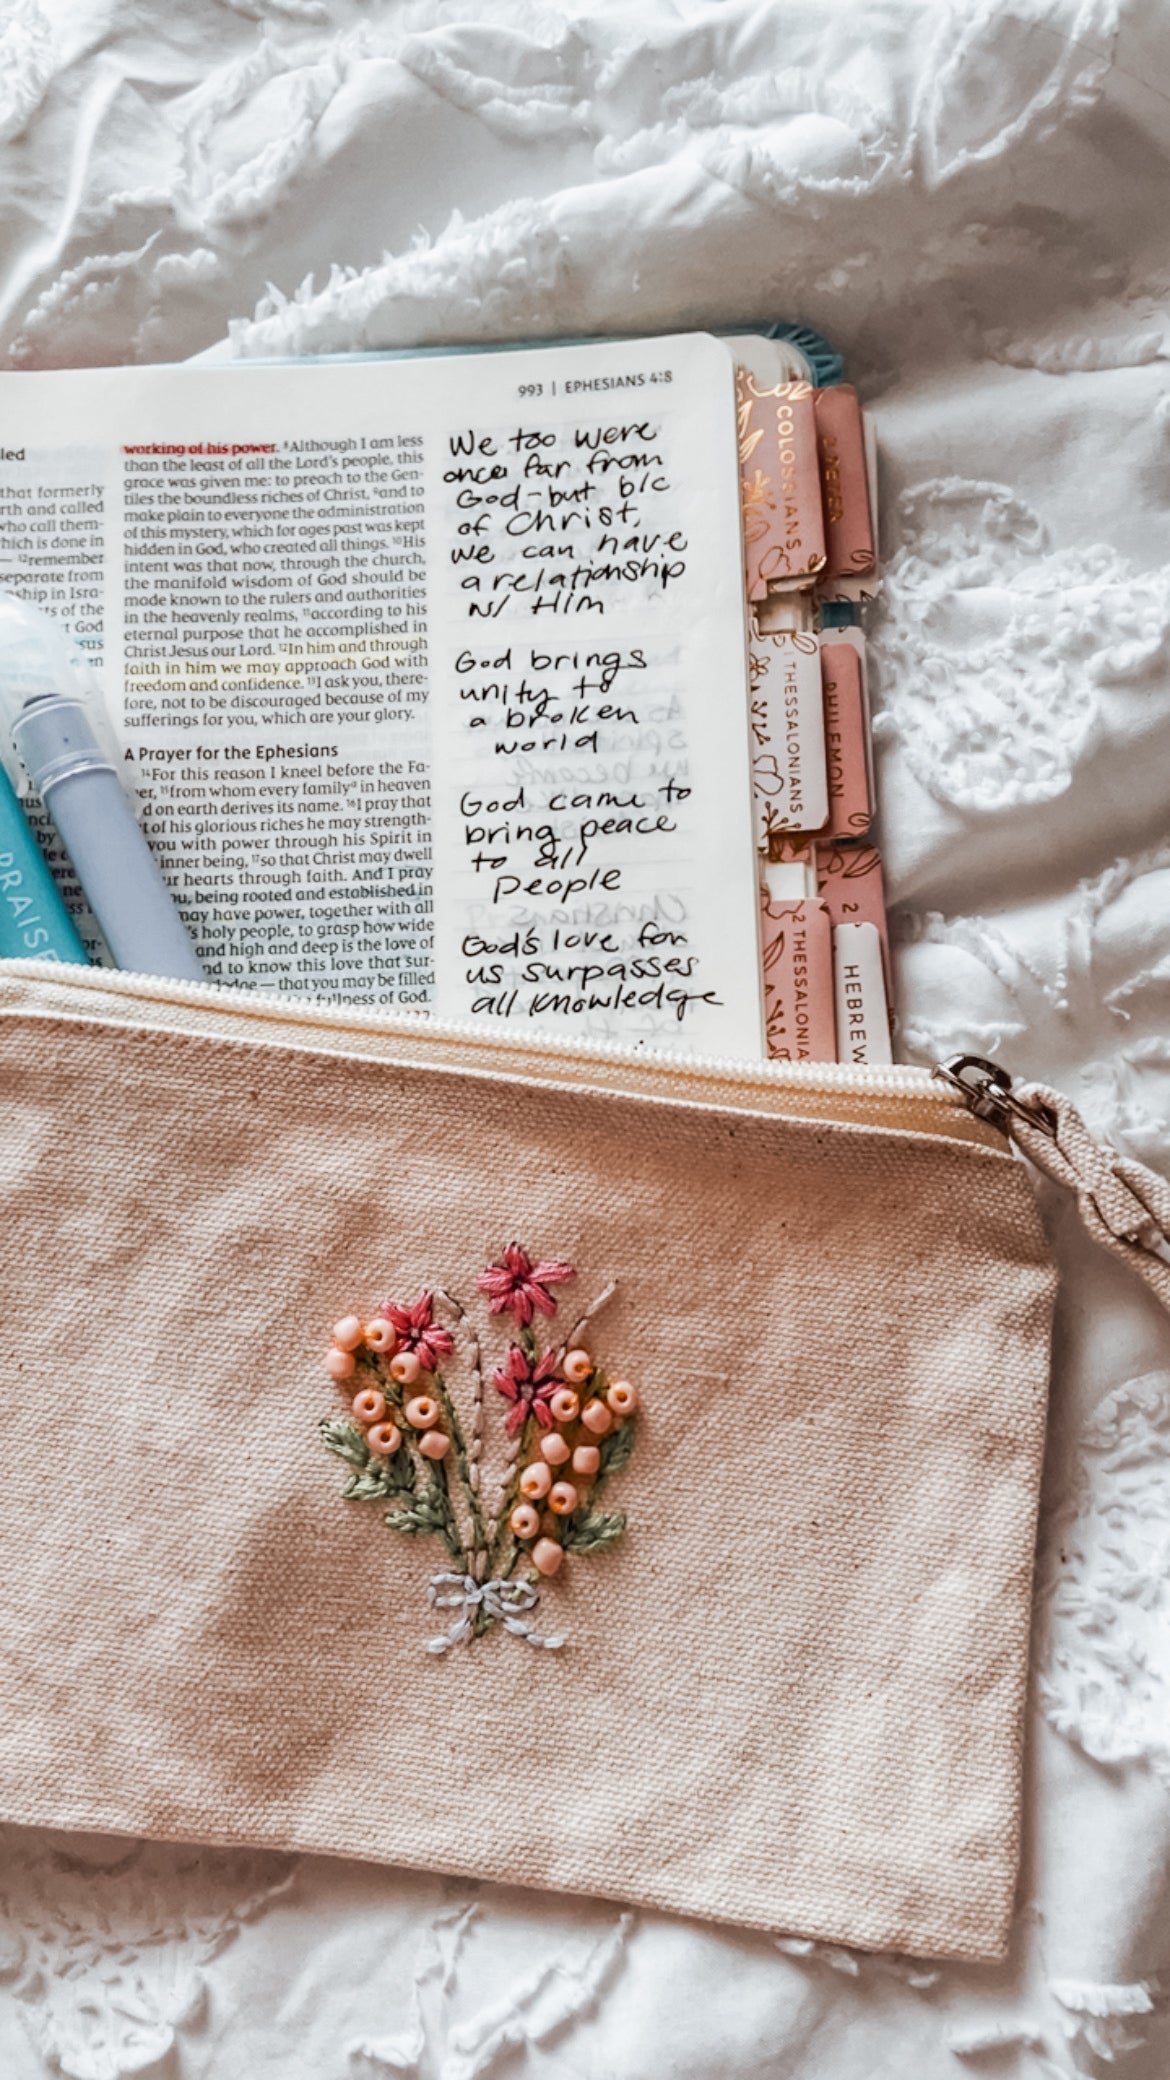 993 | EPHESIANS 4:8
led
that formerly
rth and called
who call them-
hich is done in
— ¹²remember
separate from
ship in Isra-
ts of the
t God
sus
working of his power. ⁸Although I am less
than the least of all the Lord's people, this
grace was given me: to preach to the Gen-
tiles the boundless riches of Christ, ⁹and to
make plain to everyone the administration
of this mystery, which for ages past was kept
hidden in God, who created all things. ¹⁰His
intent was that now, through the church,
the manifold wisdom of God should be
made known to the rulers and authorities
in the heavenly realms, ¹¹according to his
eternal purpose that he accomplished in
Christ Jesus our Lord. ¹²In him and through
faith in him we may approach God with
freedom and confidence. ¹³I ask you, there-
fore, not to be discouraged because of my
sufferings for you, which are your glory.
A Prayer for the Ephesians
¹⁴For this reason I kneel before the Fa-
er, ¹⁵from whom every familyᵃ in heaven
d on earth derives its name. ¹⁶I pray that
t of his glorious riches he may strength-
you with power through his Spirit in
inner being, ¹⁷so that Christ may dwell
ur hearts through faith. And I pray
ou, being rooted and established in
may have power, together with all
's holy people, to grasp how wide
and high and deep is the love of
nd to know this love that sur-
— that you may be filled
fullness of God.
We too were
once far from
God - but b/c
of Christ,
we can have
a relationship
w/ Him
God brings
unity to
a broken
world
God came to
bring peace
to all
people
God's love for
us surpasses
all knowledge
COLOSSIANS
2 PETER
1 THESSALONIANS
PHILEMON
2 THESSALONIA
2
HEBREW
PRAISE